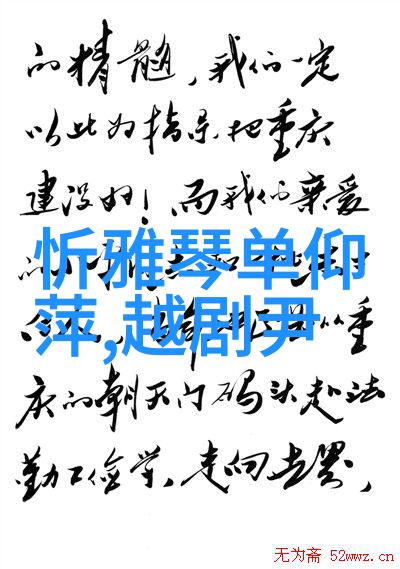 的精髓，我们一定
以此为指导把重庆
建设好！而我们亲爱
忻雅琴单仰
萍,越剧尹
从重
庆的朝天门码头赴法
勤工俭学，走向世界，
无为斋 52wwz.cn